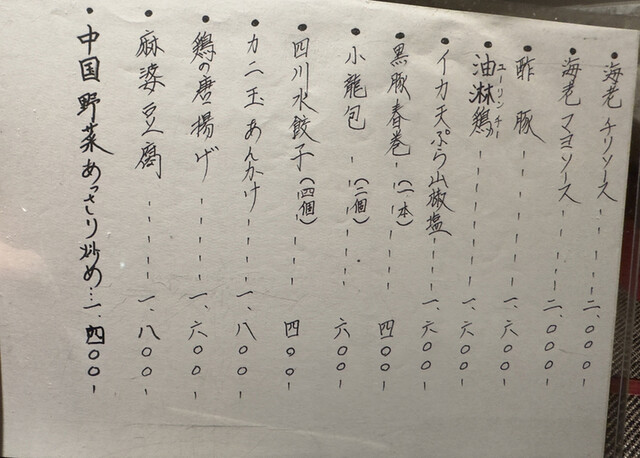 ・海老チリソース ----- 二、〇〇〇-
・海老マヨソース ---- 二、〇〇〇-
・酢豚 ------- 一、六〇〇-
・油淋鶏 ------ 一、六〇〇-
ユーリンチー
・イカ天ぷら山椒塩--- 一、六〇〇-
・黒豚春巻--(一本)-- 四〇〇-
・小龍包--(二個)--- 六〇〇-
・四川水餃子(四個)-- 四〇〇-
・カニ玉あんかけ---- 一、八〇〇-
・鶏の唐揚げ----- 一、六〇〇-
・麻婆豆腐----- 一、八〇〇-
・中国野菜あっさり炒め…一、四〇〇-